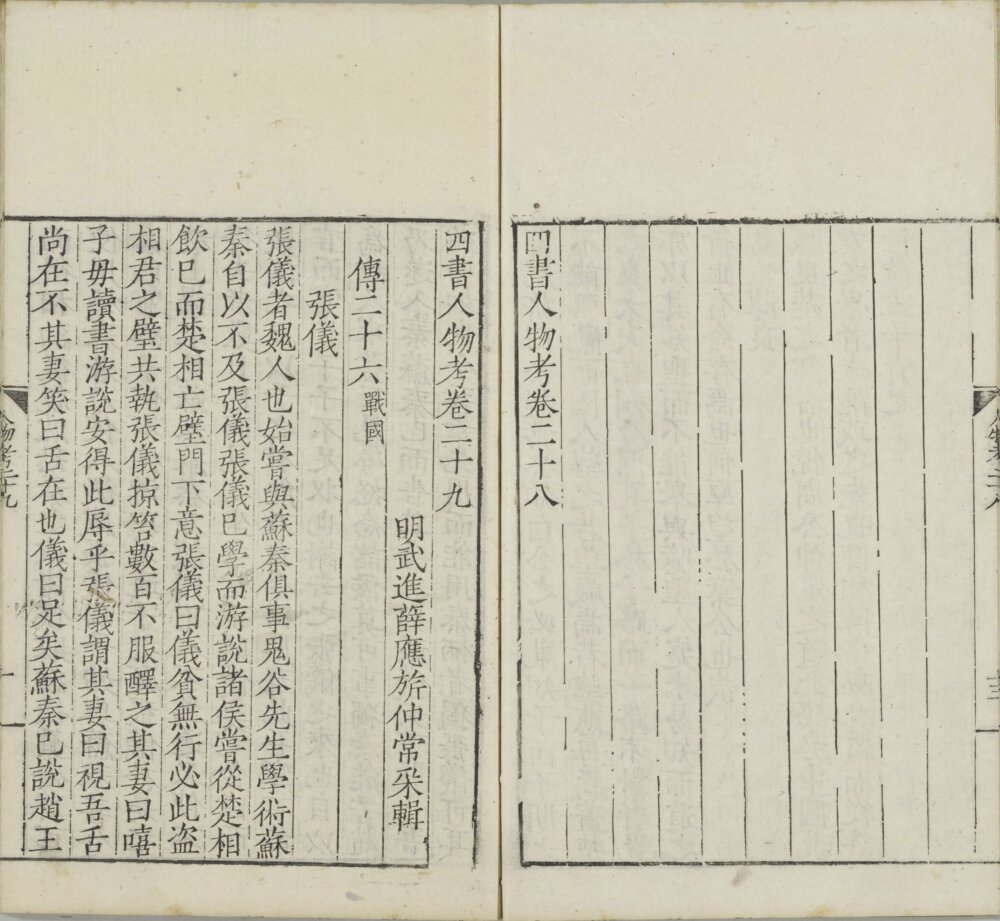 四書人物考卷二十八
四書人物考卷二十九
明武進薛應旂仲常采輯
傳二十六戰國
張儀
張儀者魏人也始嘗與蘇秦俱事鬼谷先生學術蘇
秦自以不及張儀張儀已學而游說諸侯嘗從楚相
飲已而楚相亡璧門下意張儀曰儀貧無行必此盗
相君之璧共執張儀掠笞數百不服醳之其妻曰嘻
子毋讀書游說安得此辱乎張儀謂其妻曰視吾舌
尚在不其妻笑曰舌在也儀曰足矣蘇秦已說趙王